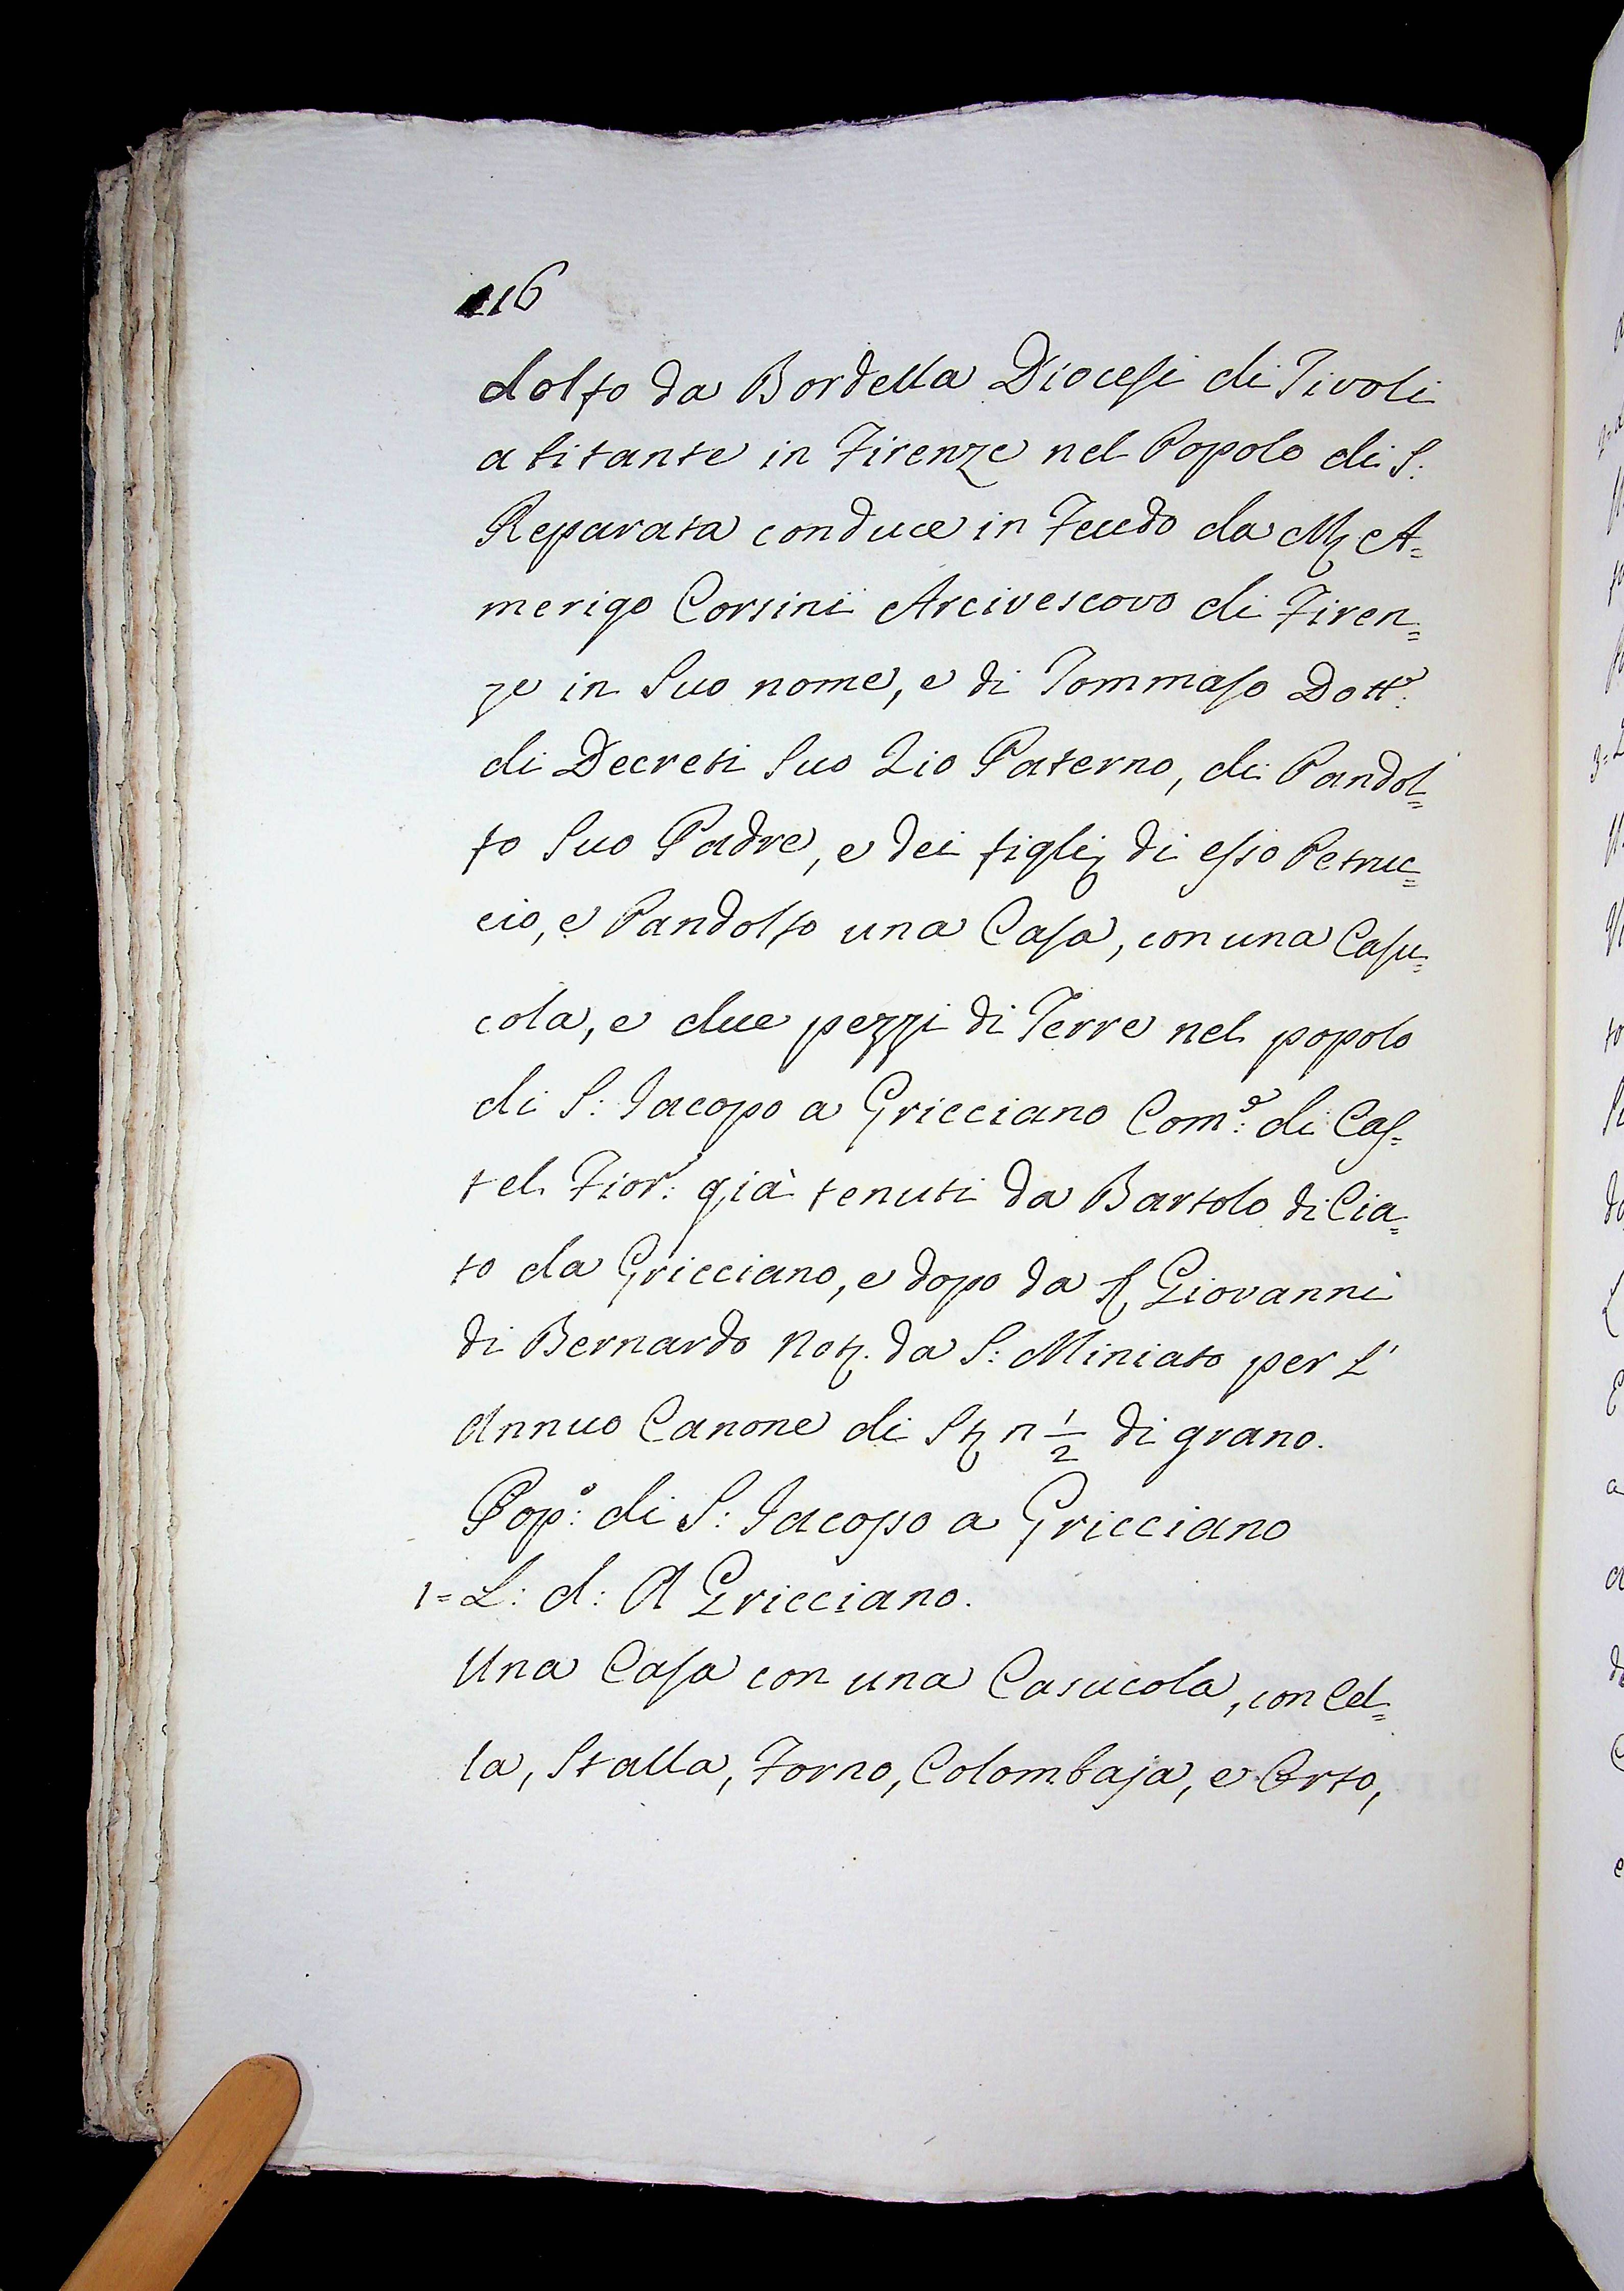 116
dolfo da Bordella Diocesi di Tivoli
abitante in Firenze nel Popolo di S.
Reparata conduce in Feudo da M. A=
merigo Corsini Arcivescovo di Firen=
ze in Suo nome, e di Tommaso Dott:e
di Decreti Suo Zio Paterno, di Pandol=
fo Suo Padre, e dei figlij di esso Petruc=
cio, e Pandolfo una Casa, con una Casu=
cola, e due pezzi di Terre nel popolo
di S: Iacopo a Gricciano Com:e di Cas=
tel Fior: già tenuti da Bartolo di Cia=
to da Gricciano, e dopo da S. Giovanni
di Bernardo Not. da S: Miniato per L'
Annuo Canone di St n 1/2 di grano.
Pop:o di S: Iacopo a Gricciano
1= L: d: A Gricciano.
Una Casa con una Casucola, con Cel=
la, Stalla, Forno, Colombaja, e Orto,